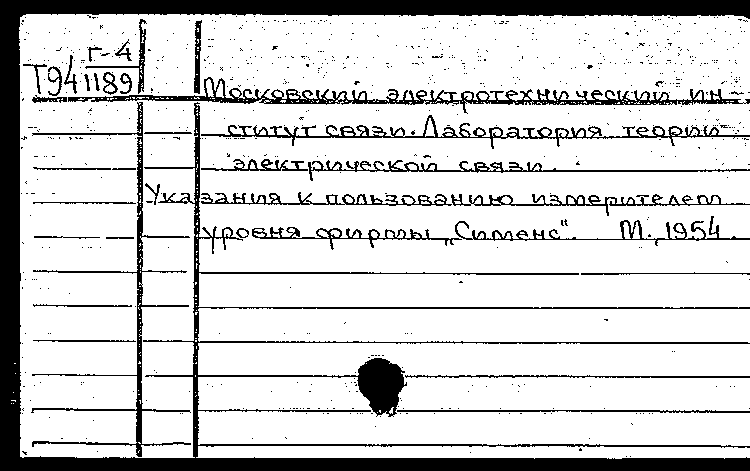 Г-4
Т94 1189
Московский электротехнический ин-
ститут связи. Лаборатория теории
электрической связи.
Указания к пользованию измерителем
уровня фирмы „Сименс“. М., 1954.